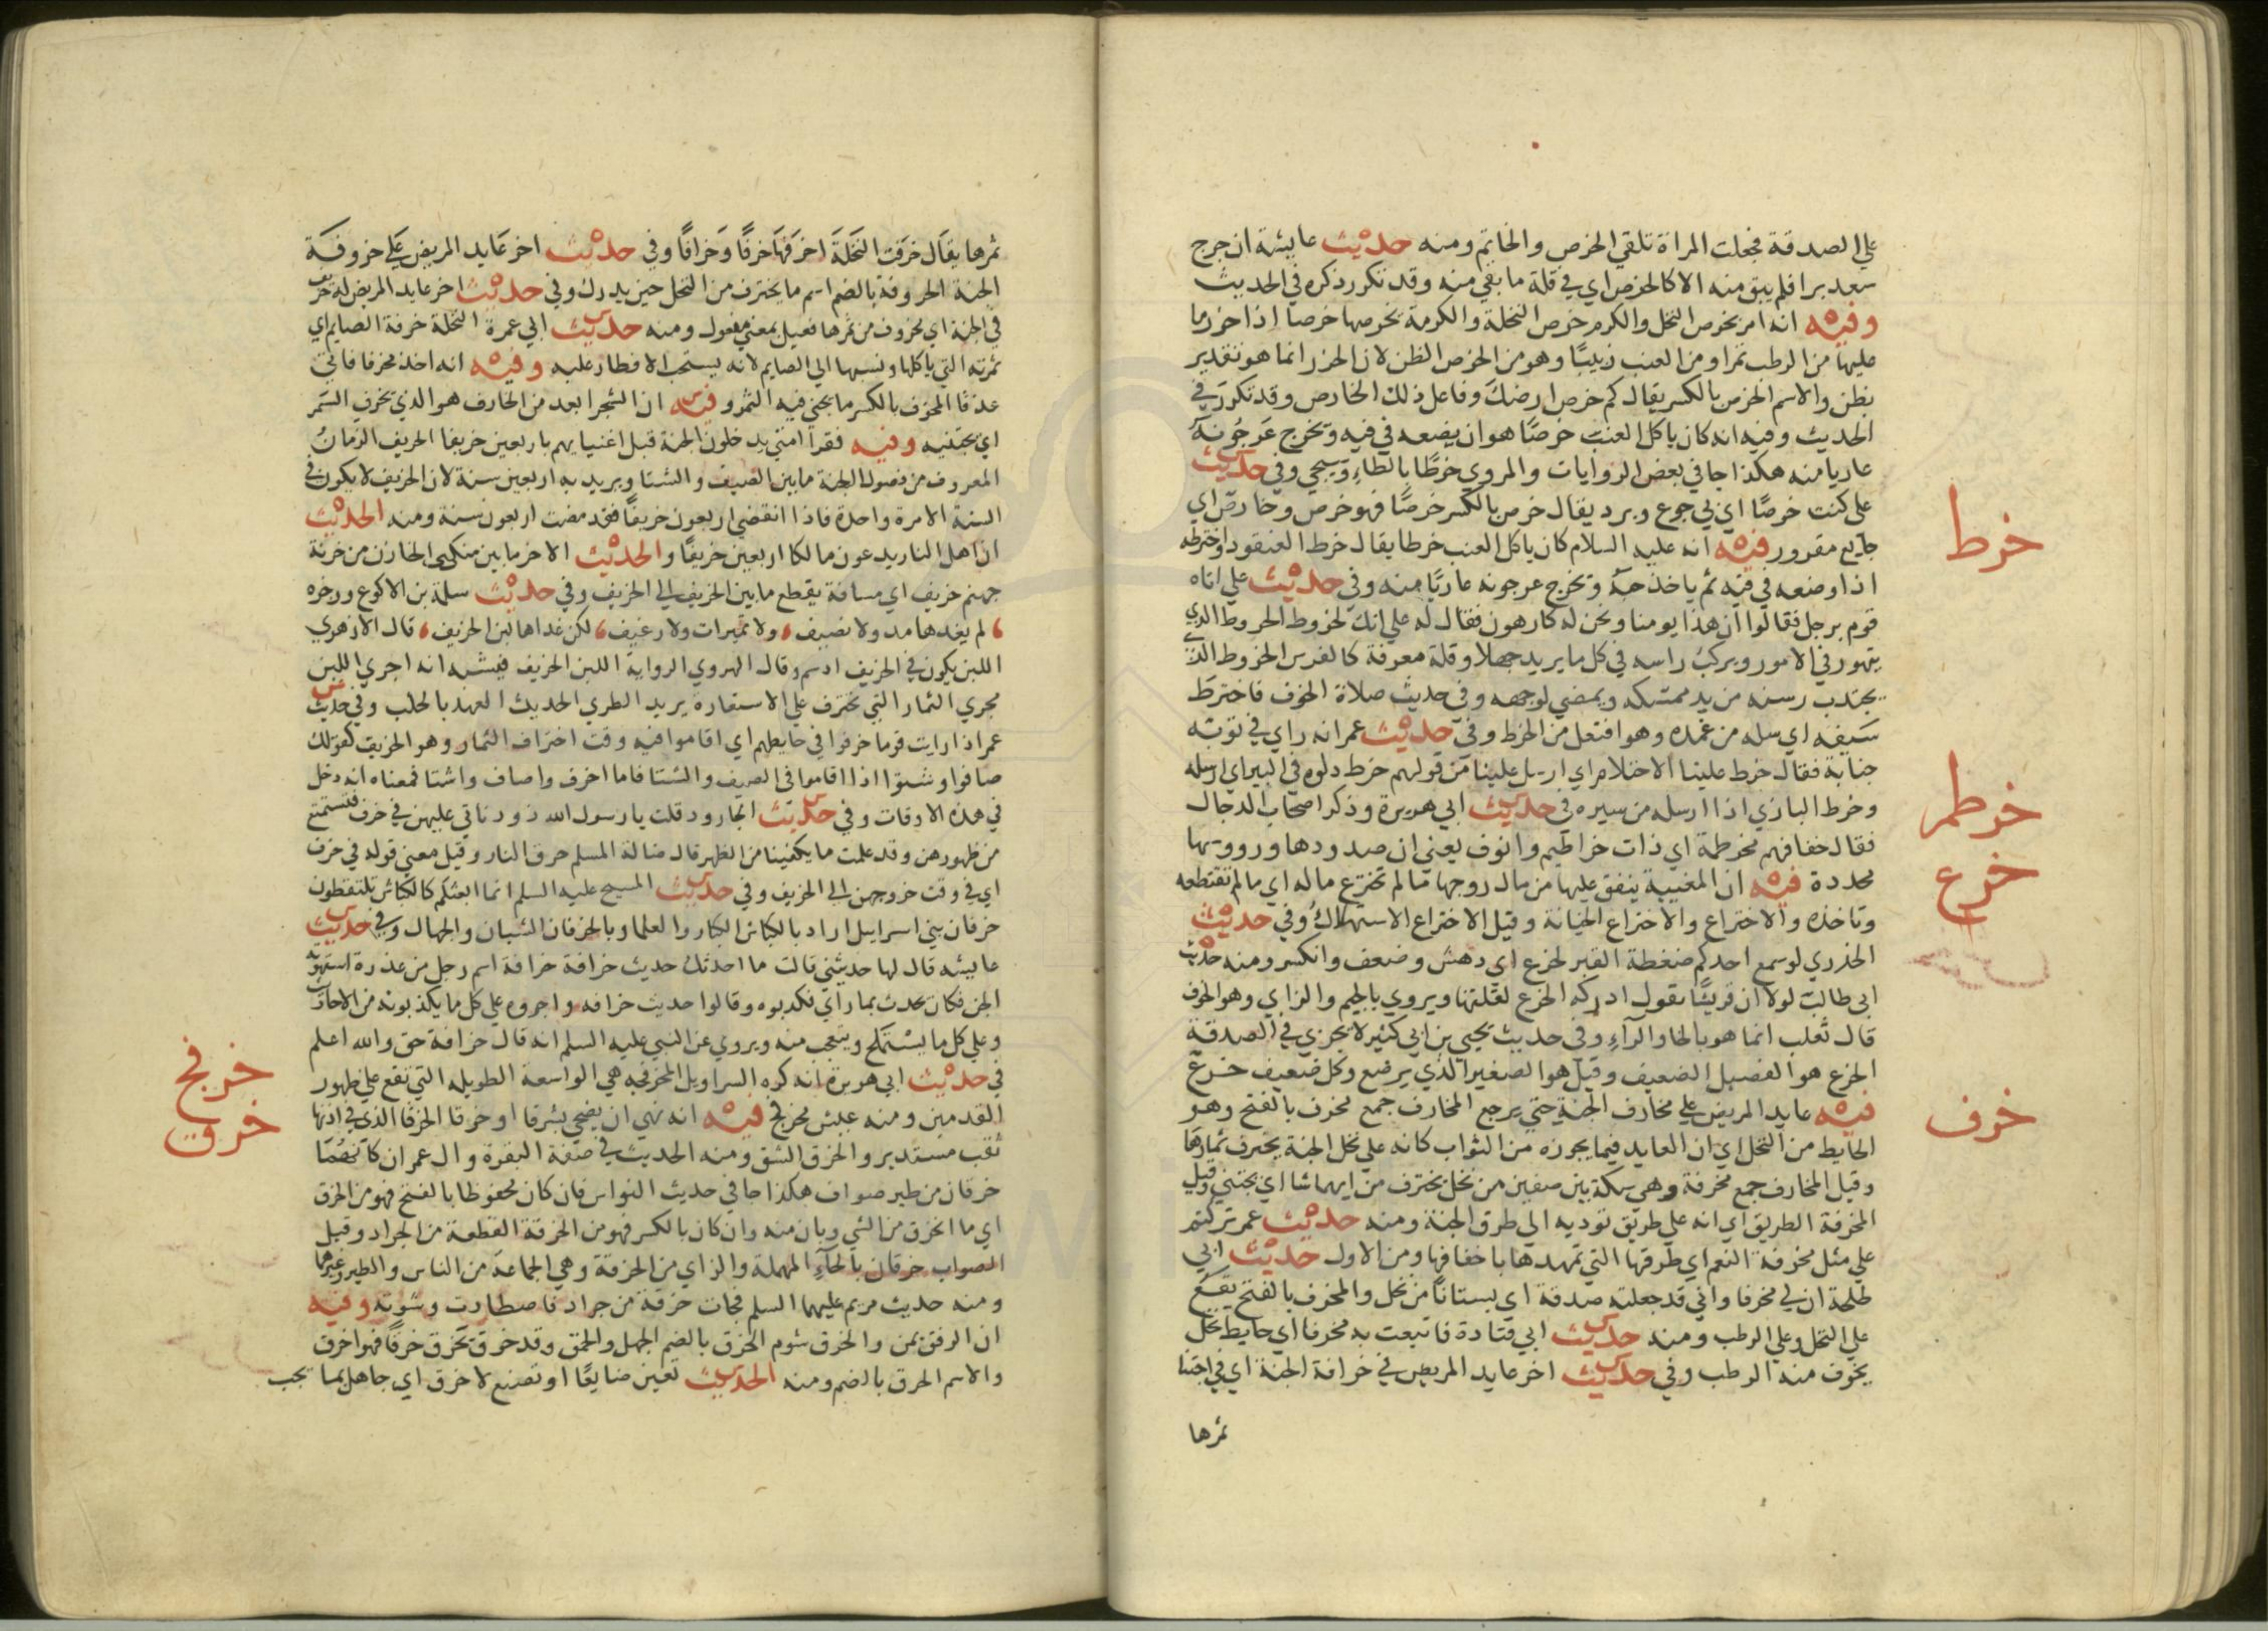 علي الصدقة فجعلت المراة تلقي الخرص والخاتم ومنه حديث عايشة ان جرح
سعد برا فلم يبق منه الا كالخرص اي في قلة ما بقي منه وقد تكرر ذكره في الحديث
وفيه انه امر بخرص النخل والكرم خرص النخلة والكرمة يخرصها خرصا اذا حزر ما
عليها من الرطب تمرا ومن العنب زبيبًا وهو من الخرص الظن لان الحزر انما هو تقدير
بظن والاسم الخرص بالكسر يقال كم خرص ارضك وفاعل ذلك الخارص وقد تكرر في
الحديث وفيه انه كان ياكل العنب خرصًا هو ان يضعه في فيه ويخرج عرجونه
عاريا منه هكذا جا في بعض الروايات والمروي خرطًا بالطاءِ وسيجي وفي حديث
علي كنت خرصًا اي بي جوع وبرد يقال خرص بالكسر خرصًا فهو خرص وخارص اي
جايع مقرور فيه انه عليه السلام كان ياكل العنب خرطا يقال خرط العنقود واخترطه
خرط
اذا وضعه في فيه ثم ياخذ حبه ويخرج عرجونه عاريًا منه وفي حديث علي اتاه
قوم برجل فقالوا ان هذا يومنا ونحن له كارهون فقال له علي انك لخروط الخروط الذي
يتهور في الامور ويركب راسه في كل ما يريد جهلا وقلة معرفة كالفرس الخروط الذي
يجتذب رسنه من يد ممسكه ويمضي لوجهه وفي حديث صلاة الخوف فاخترط
سيفه اي سله من غمده وهو افتعل من الخرط وفي حديث عمر انه راي في ثوبه
جنابة فقال خرط علينا الاحتلام اي ارسل علينا من قولهم خرط دلوه في البير اي ارسله
وخرط البازي اذا ارسله من سيره في حديث ابي هريرة وذكر اصحاب الدجال
خرطم
فقال خفافهم مخرطمة اي ذات خراطيم وانوف يعني ان صدودها ورووسها
محددة فيه ان المغيبة ينفق عليها من مال زوجها ما لم تخترع ماله اي ما لم تقتطعه
خرع
وتاخذه والاختراع والاختراع الخيانة وقيل الاختراع الاستهلاك وفي حديث
الخدري لو سمع احدكم ضغطة القبر لخرع اي دهش وضعف وانكسر ومنه حديث
ابي طالب لولا ان قريشًا تقول ادركه الخرع لقلتها ويروي بالجيم والزاي وهو الخوف
قال ثعلب انما هو بالخا والرآءِ وفي حديث يحيي بن ابي كثير لا يجزي في الصدقة
الخرع هو الفصيل الضعيف وقيل هو الصغير الذي يرضع وكل ضعيف خرع
فيه عايد المريض علي مخارف الجنة حتي يرجع المخارف جمع مخرف بالفتح وهو
خرف
الحايط من النخل اي ان العايد فيما يحوزه من الثواب كانه علي نخل الجنة يخترف ثمارها
وقيل المخارف جمع مخرفة وهي سكة بين صفين من نخل يخترف من ايهما شا اي يجتني وقيل
المخرفة الطريق اي انه علي طريق توديه الي طرق الجنة ومنه حديث عمر تركتم
علي مثل مخرفة النعم اي طرقها التي تمهدها باخفافها ومن الاول حديث ابي
طلحة ان لي مخرفا واني قد جعلته صدقة اي بستانًا من نخل والمخرف بالفتح يقع
علي النخل وعلي الرطب ومنه حديث ابي قتادة فابتعت به مخرفا اي حايط نخل
يخرف منه الرطب وفي حديث اخر عايد المريض في خرافة الجنة اي في اجتنا
ثمرها
ثمرها يقال خرفت النخلة اخرفها خرفًا وخرافًا وفي حديث اخر عايد المريض علي خروفة
الجنة الخروفة بالضم اسم ما يخترف من النخل حين يدرك وفي حديث اخر عايد المريض له خريف
في الجنة اي مخروف من ثمرها فعيل بمعني مفعول ومنه حديث ابي عمرة النخلة خرفة الصايم اي
ثمرته التي ياكلها ونسبها الي الصايم لانه يستحب الافطار عليه وفيه انه اخذ مخرفا فاتي
عذقا المخرف بالكسر ما يجني فيه الثمر وفيه ان الشجر ابعد من الخارف هو الذي يخرف الثمر
اي يجتنيه وفيه فقرا امتي يدخلون الجنة قبل اغنيايهم باربعين خريفا الخريف الزمان
المعروف من فصول السنة ما بين الصيف والشتا ويريد به اربعين سنة لان الخريف لا يكون في
السنة الا مرة واحدة فاذا انقضي اربعون خريفًا فقد مضت اربعون سنة ومنه الحديث
ان اهل النار يدعون مالكا اربعين خريفًا والحديث الاخر ما بين منكبي الخازن من خزنة
جهنم خريف اي مسافة يقطع ما بين الخريف الي الخريف وفي حديث سلمة بن الاكوع ورجزه
لم يغدها مد ولا نصيف ولا تميرات ولا رغيف لكن غداها لبن الخريف قال الازهري
اللبن يكون في الخريف ادسم وقال الهروي الرواية اللبن الخريف فيشبه انه اجري اللبن
مجري الثمار التي تخترف علي الاستعارة يريد الطري الحديث العهد بالحلب وفي حديث
عمر اذا رايت قوما خرفوا في حايطهم اي اقاموا فيه وقت اختراف الثمار وهو الخريف كقولك
صافوا وشتوا اذا اقاموا في الصيف والشتا فاما اخرف واصاف واشتا فمعناه انه دخل
في هذه الاوقات وفي حديث الجارود قلت يا رسول الله ذود ناتي عليهن في خرف فنستمتع
من ظهورهن وقد علمت ما يكفينا من الظهر قال ضالة المسلم حرق النار وقيل معني قوله في خرف
اي في وقت خروجهن الي الخريف وفي حديث المسيح عليه السلم انما ابعثكم كالكباش تلتقطون
خرفان بني اسراييل اراد بالكباش الكبار والعلما وبالخرفان الشبان والجهال وفي حديث
عايشه قال لها حدثيني قالت ما احدثك حديث خرافة خرافة اسم رجل من عذرة استهوته
الجن فكان يحدث بما راي فكذبوه وقالوا حديث خرافه واجروه علي كل ما يكذبونه من الاحاديث
وعلي كل ما يستملح ويتعجب منه ويروي عن النبي عليه السلم انه قال خرافة حق والله اعلم
في حديث ابي هريرة انه كره السراويل المخرفجه هي الواسعة الطويله التي تقع علي ظهور
خرفج
القدمين ومنه عيش مخرفج فيه انه نهي ان يضحي بشرقا او خرقا الخرقا الذي في اذنها
خرق
ثقب مستدير والخرق الشق ومنه الحديث في صفة البقرة وال عمران كانهما
خرقان من طير صواف هكذا جا في حديث النواس فان كان محفوظا بالفتح فهو من الخرق
اي ما انخرق من الشي وبان منه وان كان بالكسر فهو من الخرقة القطعة من الجراد وقيل
الصواب حزقان بالحآءِ المهملة والزاي من الحزقة وهي الجماعة من الناس والطير وغيرهما
ومنه حديث مريم عليها السلم فجات خرقة من جراد فاصطادت وشوته وفيه
ان الرفق يمن والخرق شوم الخرق بالضم الجهل والحمق وقد خرق يخرق خرقًا فهو اخرق
والاسم الخرق بالضم ومنه الحديث تعين ضايعًا او تصنع لاخرق اي جاهل بما يجب